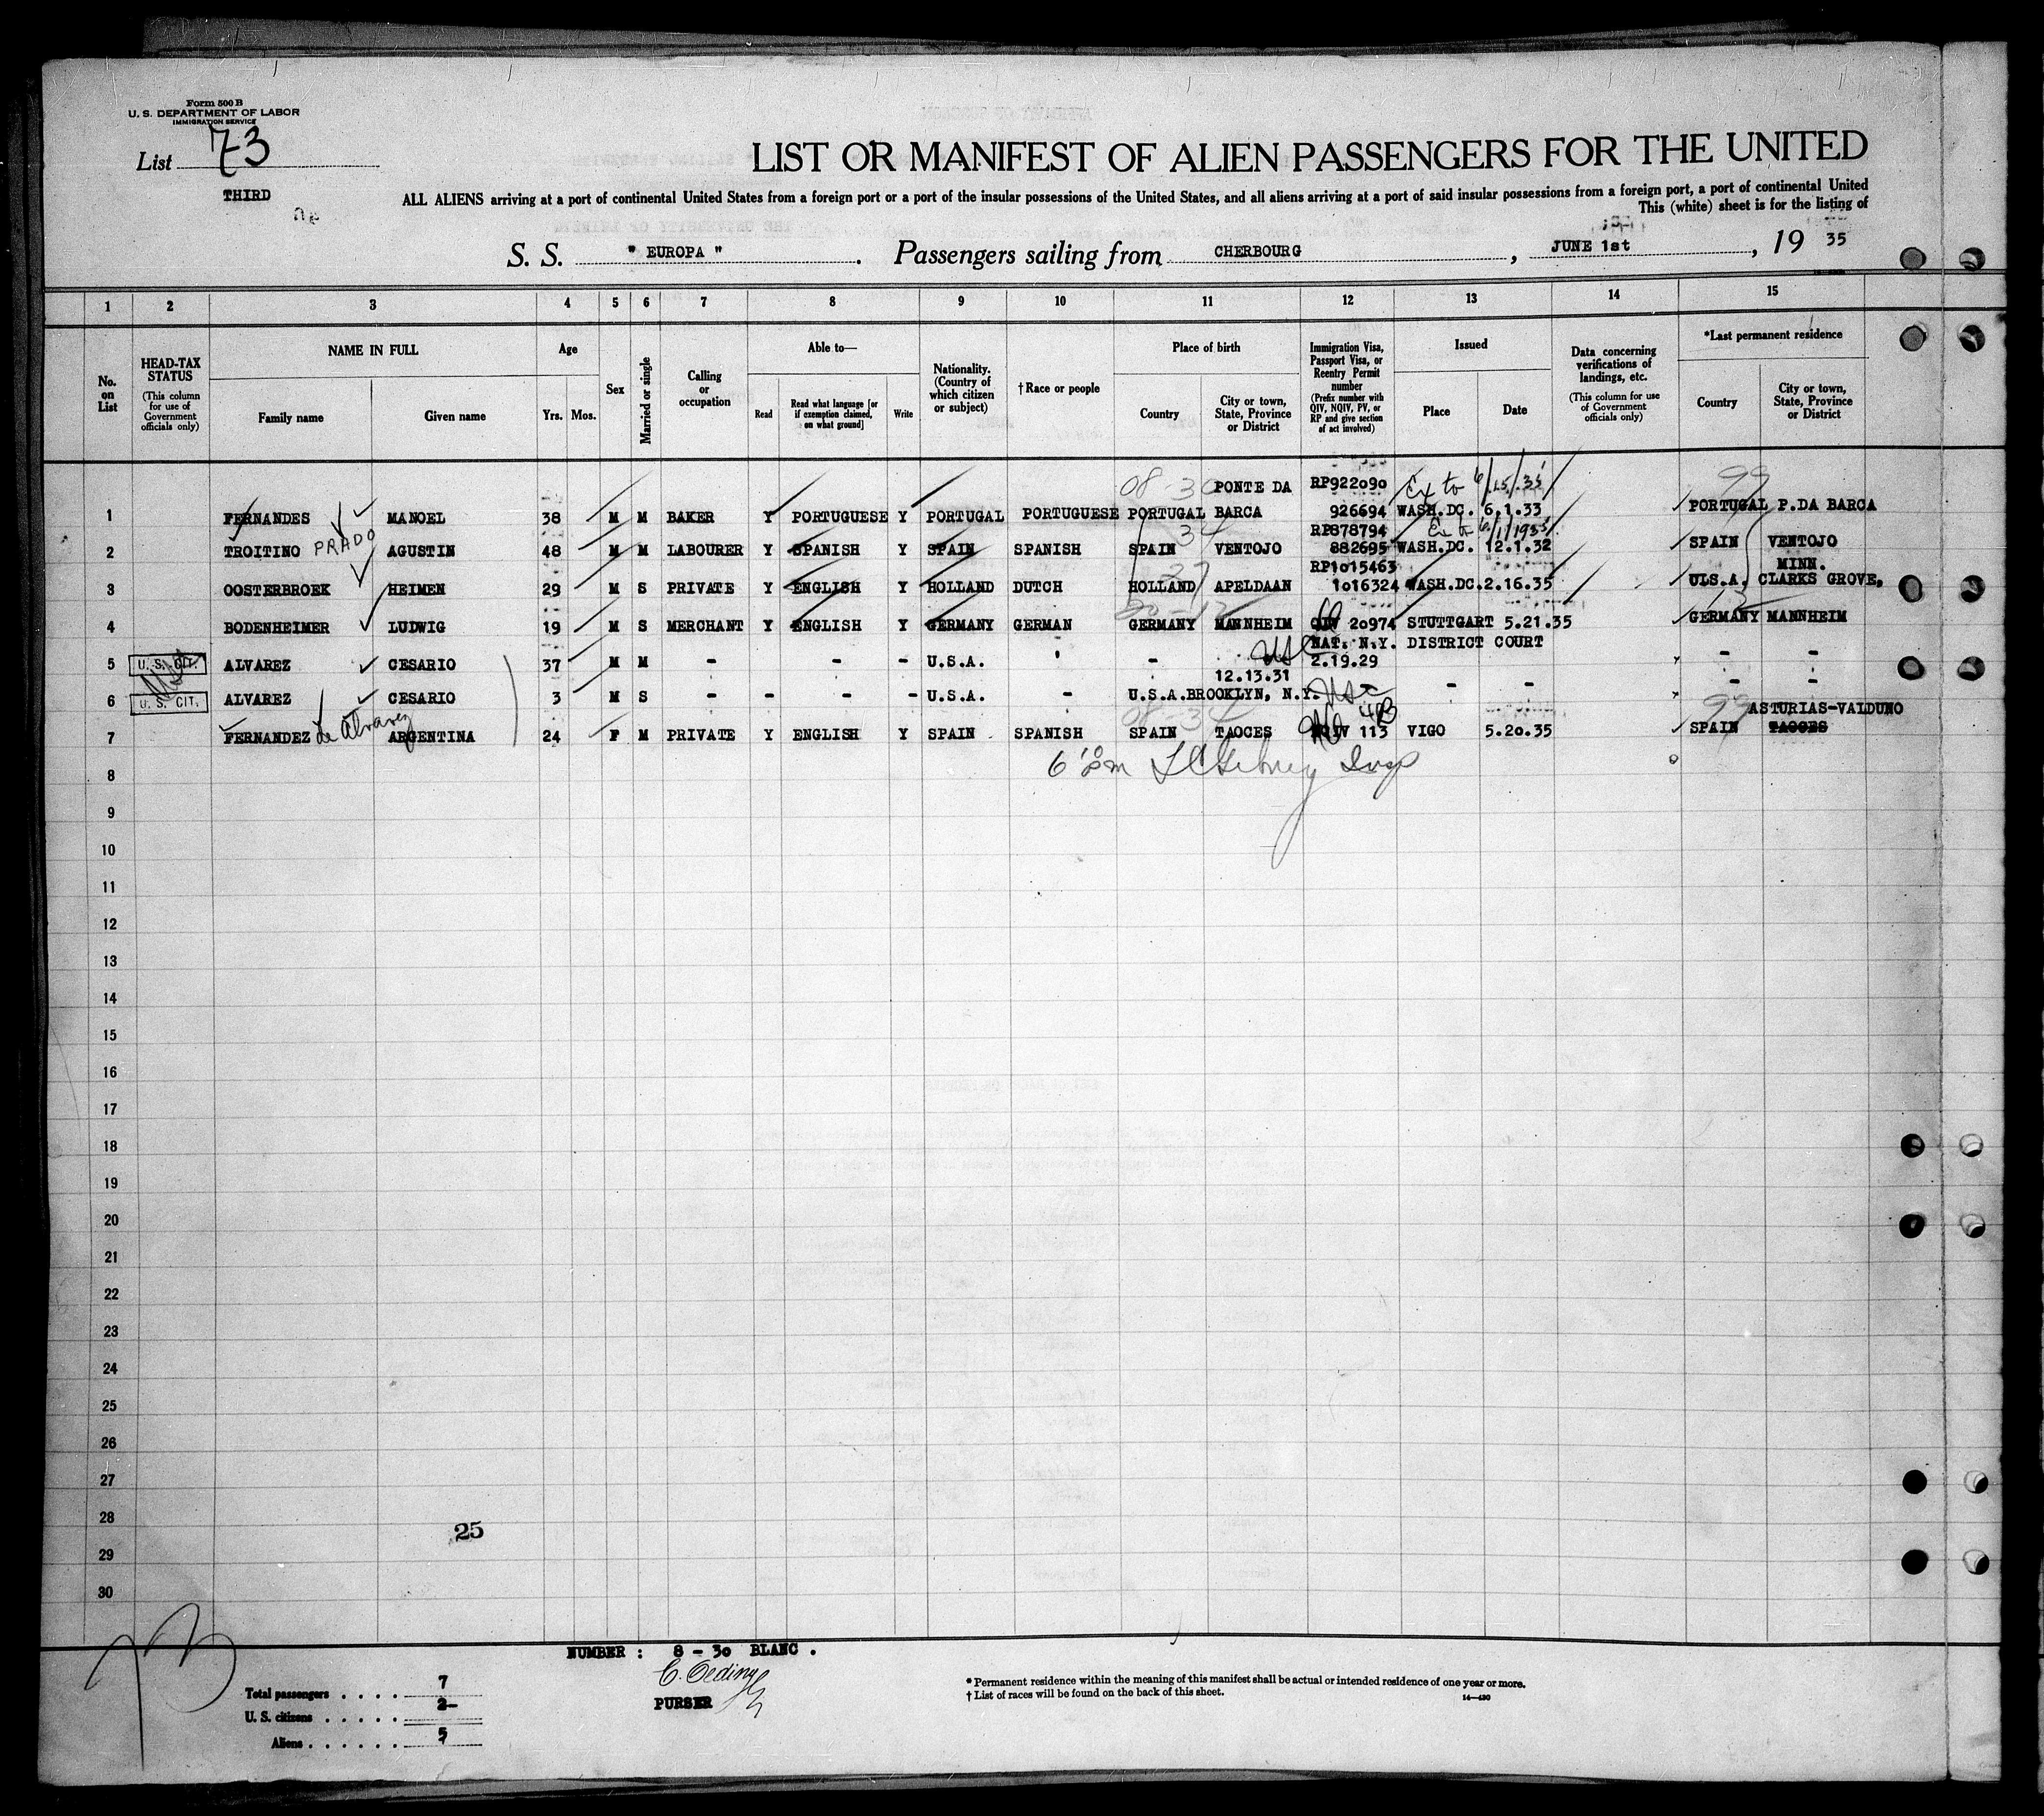 Form 500 B
U. S. DEPARTMENT OF LABOR
IMMIGRATION SERVICE
List 73
THIRD
LIST OR MANIFEST OF ALIEN PASSENGERS FOR THE UNITED
ALL ALIENS arriving at a port of continental United States from a foreign port or a port of the insular possessions of the United States, and all aliens arriving at a port of said insular possessions from a foreign port, a port of continental United
This (white) sheet is for the listing of
S. S. " EUROPA " . Passengers sailing from CHERBOURG , JUNE 1st , 19 35
1 2 3 4 5 6 7 8 9 10 11 12 13 14 15
No. on List
HEAD-TAX STATUS
(This column for use of Government officials only)
NAME IN FULL
Family name Given name
Age
Yrs. Mos.
Sex
Married or single
Calling or occupation
Able to—
Read
Read what language [or if exemption claimed, on what ground]
Write
Nationality. (Country of which citizen or subject)
† Race or people
Place of birth
Country
City or town, State, Province or District
Immigration Visa, Passport Visa, or Reentry Permit number
(Prefix number with QIV, NQIV, PV, or RP and give section of act involved)
Issued
Place Date
Data concerning verifications of landings, etc.
(This column for use of Government officials only)
*Last permanent residence
Country
City or town, State, Province or District
08-30 PONTE DA RP922090 Ex to 6/15/35 99
1 FERNANDES MANOEL 38 M M BAKER Y PORTUGUESE Y PORTUGAL PORTUGUESE PORTUGAL BARCA 926694 WASH.DC. 6.1.33 PORTUGAL P.DA BARCA
PRADO 34 RP878794 Ex to 6/1/1935
2 TROITINO AGUSTIN 48 M M LABOURER Y SPANISH Y SPAIN SPANISH SPAIN VENTOJO 882695 WASH.DC. 12.1.32 SPAIN VENTOJO
27 RP1015463 MINN.
3 OOSTERBROEK HEIMEN 29 M S PRIVATE Y ENGLISH Y HOLLAND DUTCH HOLLAND APELDAAN 1016324 WASH.DC. 2.16.35 ULS.A. CLARKS GROVE,
4 BODENHEIMER LUDWIG 19 M S MERCHANT Y ENGLISH Y GERMANY GERMAN GERMANY MANNHEIM QIV 20974 STUTTGART 5.21.35 GERMANY MANNHEIM
NAT. N.Y. DISTRICT COURT
5 U. S. CIT. ALVAREZ CESARIO 37 M M - - - U.S.A. - USC 2.19.29 - -
12.13.31
6 U. S. CIT. ALVAREZ CESARIO 3 M S - - - - U.S.A. - U.S.A. BROOKLYN, N.Y. USC - - - -
de Alvarez 08-34 4B 99 ASTURIAS-VALDUNO
7 FERNANDEZ ARGENTINA 24 F M PRIVATE Y ENGLISH Y SPAIN SPANISH SPAIN TAOCES NQIV 113 VIGO 5.20.35 SPAIN TAOCES
8
9
10
11
12
13
14
15
16
17
18
19
20
21
22
23
24
25
26
27
28
29
30
25
NUMBER : 8 - 30 BLANC .
PURSER
Total passengers . . . . 7
U. S. citizens . . . . . 2-
Aliens . . . . . . 5
* Permanent residence within the meaning of this manifest shall be actual or intended residence of one year or more.
† List of races will be found on the back of this sheet.
14—430